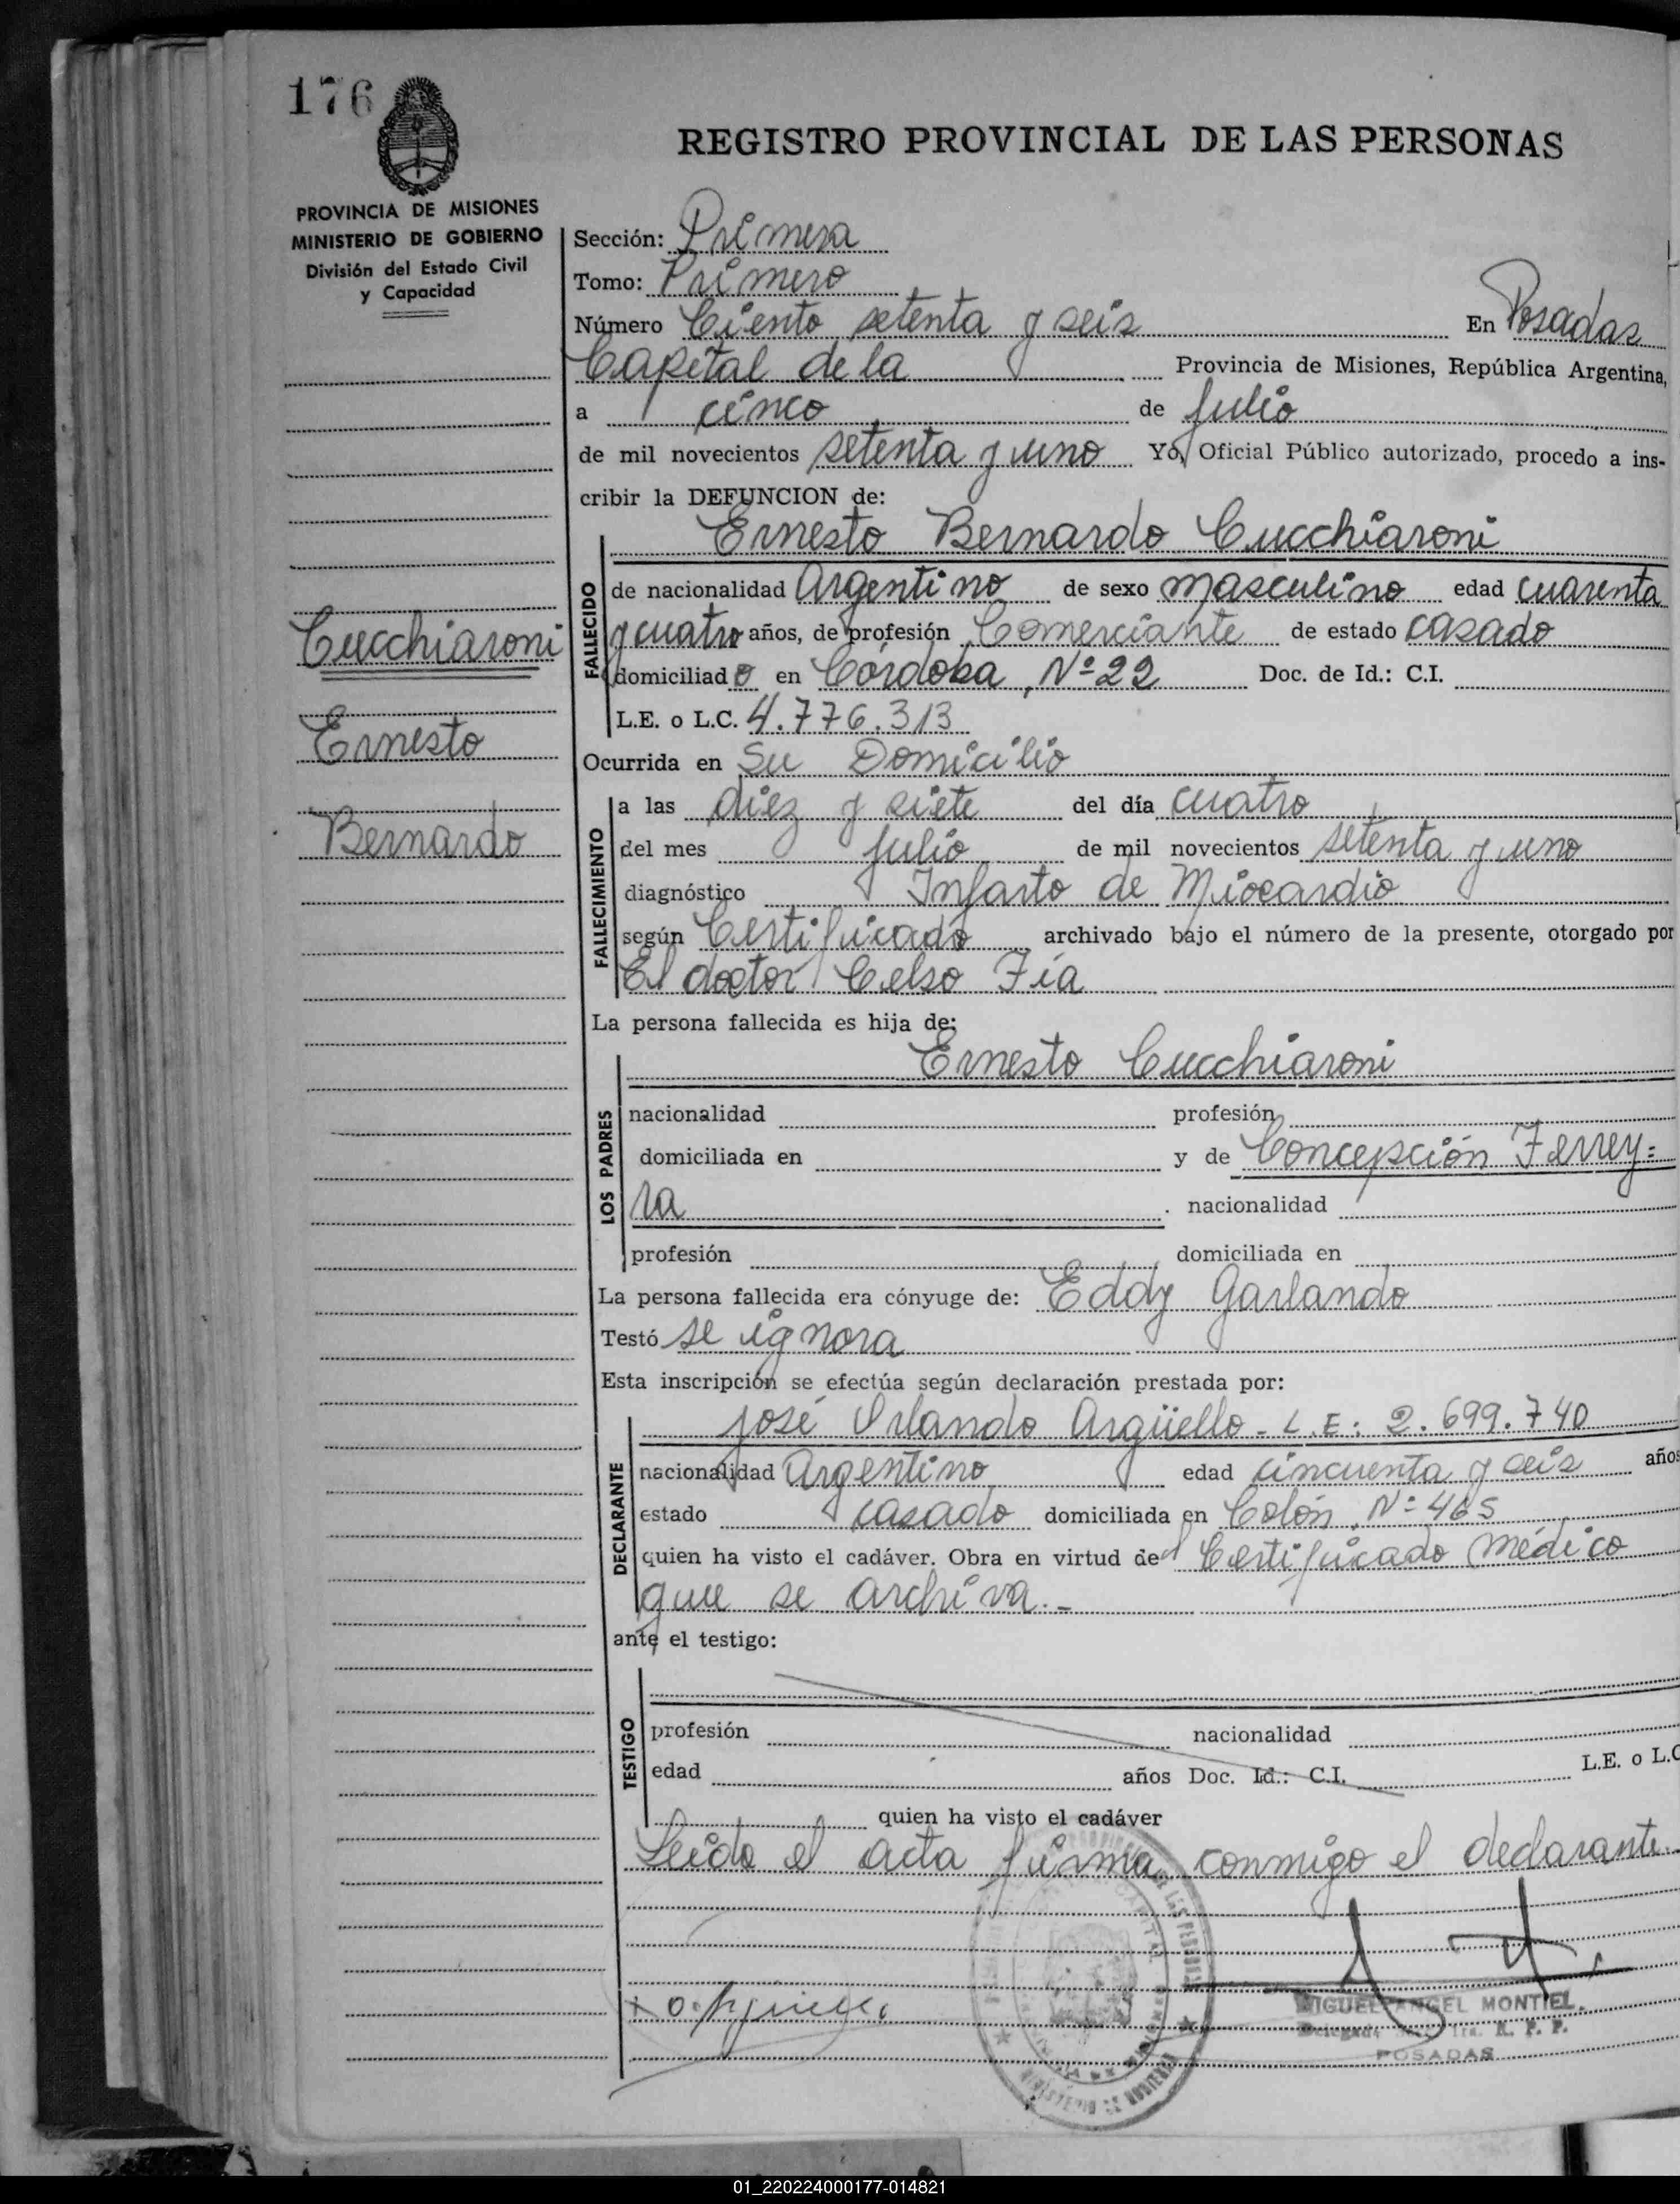 176
REGISTRO PROVINCIAL DE LAS PERSONAS
PROVINCIA DE MISIONES
MINISTERIO DE GOBIERNO
División del Estado Civil
y Capacidad
Sección: Primera
Tomo: Primero
Número Ciento setenta y seis En Posadas
Capital de la Provincia de Misiones, República Argentina,
a cinco de julio
de mil novecientos setenta y uno Yo, Oficial Público autorizado, procedo a ins-
cribir la DEFUNCION de:
Ernesto Bernardo Cucchiaroni
FALLECIDO
de nacionalidad Argentino de sexo masculino edad cuarenta
y cuatro años, de profesión Comerciante de estado casado
domiciliado en Córdoba, Nº 22 Doc. de Id.: C.I.
L.E. o L.C. 4.776.313
Cucchiaroni
Ernesto
Bernardo
Ocurrida en Su Domicilio
FALLECIMIENTO
a las diez y siete del día cuatro
del mes julio de mil novecientos setenta y uno
diagnóstico Infarto de Miocardio
según Certificado archivado bajo el número de la presente, otorgado por
El doctor Celso Fía
La persona fallecida es hija de:
LOS PADRES
Ernesto Cucchiaroni
nacionalidad profesión
domiciliada en y de Concepción Ferrey=
ra nacionalidad
profesión domiciliada en
La persona fallecida era cónyuge de: Eddy Garlando
Testó se ignora
Esta inscripción se efectúa según declaración prestada por:
DECLARANTE
José Orlando Argüello - L.E: 2.699.740
nacionalidad Argentino edad cincuenta y seis años
estado casado domiciliada en Colón, Nº 465
quien ha visto el cadáver. Obra en virtud del Certificado médico
que se archiva.-
ante el testigo:
TESTIGO
profesión nacionalidad
edad años Doc. Id.: C.I. L.E. o L.C
quien ha visto el cadáver
Leída el acta firma conmigo el declarante.
MIGUEL ANGEL MONTIEL
R. P. P.
POSADAS
MINISTERIO DE GOBIERNO
01_220224000177-014821